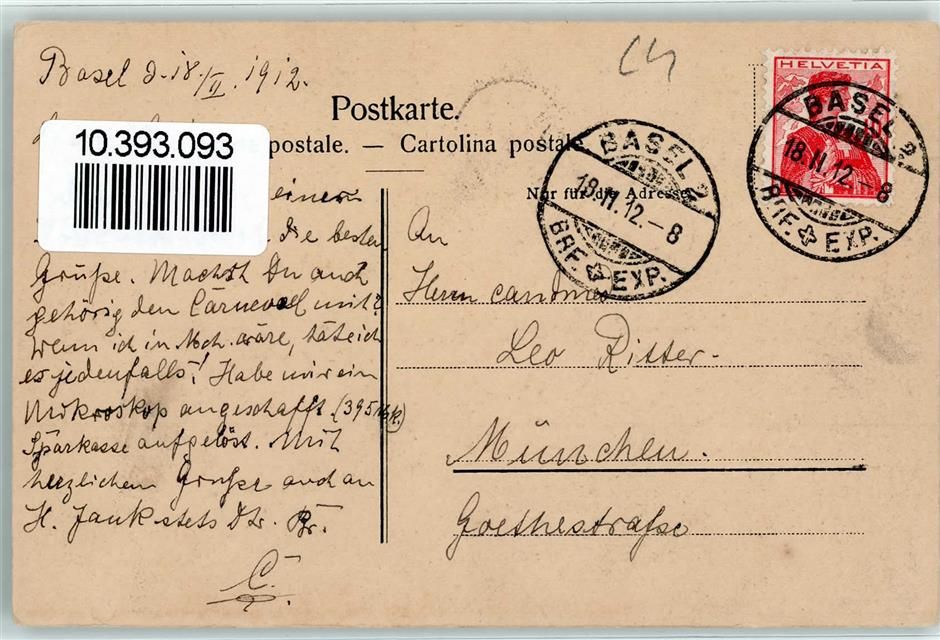 Basel d. 18./II. 1912.
C4
HELVETIA
Postkarte.
10.393.093
postale. — Cartolina postale.
Nur für die Adresse
BASEL 2
18.II.12.–8
BRF. EXP.
BASEL 2
18.II.12.–8
BRF. EXP.
einen
die besten
Grüße. Machst Du auch
gehörig den Carneval mit?
Wenn ich in Mch. wäre, täte ich
es jedenfalls! Habe mir ein
Mikroskop angeschafft (395 Mk.)
Sparkasse aufgelöst. Mit
herzlichem Gruße auch an
H. Jank stets Dr. Br.
C.
An
Herrn cand med
Leo Ritter.
München.
Goethestraße